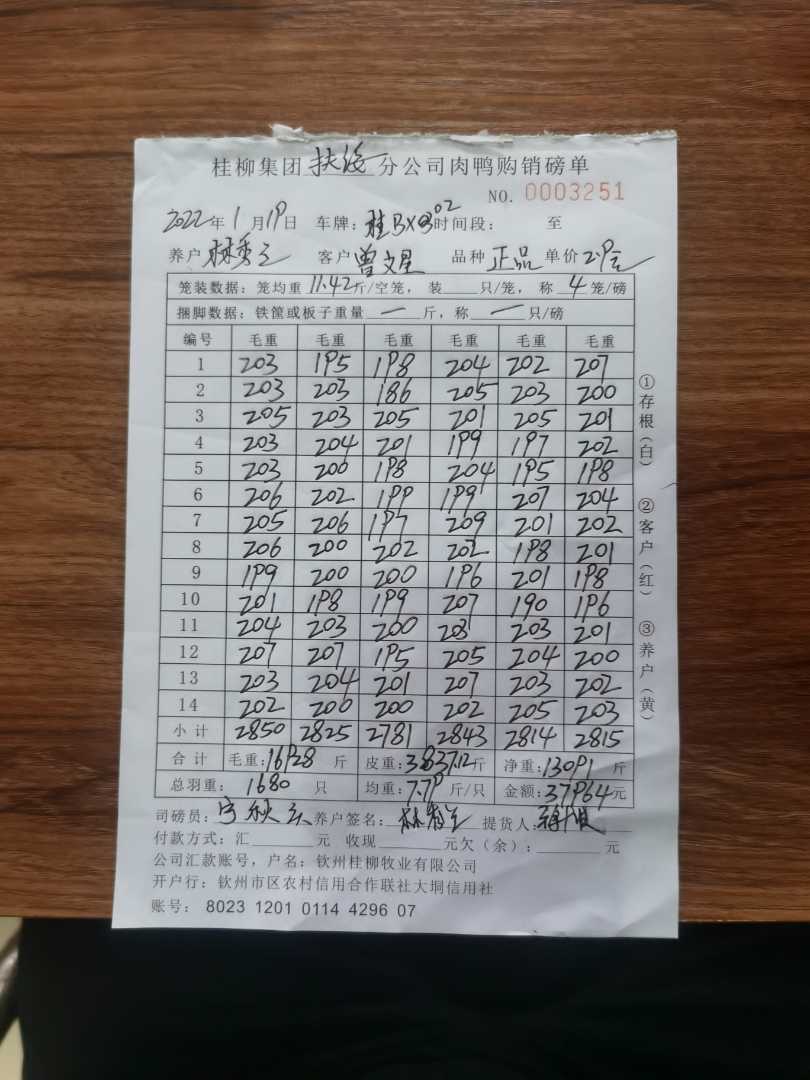 桂柳集团扶绥分公司肉鸭购销磅单
NO. 0003251
2022年1月19日 车牌：桂BX802时间段： 至
养户 林秀兰 客户 曾文星 品种 正品 单价 2.9
笼装数据：笼均重 11.42斤/空笼，装 只/笼，称 4 笼/磅
捆脚数据：铁筐或板子重量 一 斤，称 一 只/磅
编号 毛重 毛重 毛重 毛重 毛重 毛重
1 203 195 198 204 202 207
2 203 203 186 205 203 200
3 205 203 205 201 205 201
4 203 204 201 199 197 202
5 203 200 198 204 195 198
6 206 202 199 199 207 204
7 205 206 197 209 201 202
8 206 200 202 202 198 201
9 199 200 200 196 201 198
10 201 198 199 207 190 196
11 204 203 200 203 203 201
12 207 207 195 205 204 200
13 203 204 201 207 203 202
14 202 200 200 202 205 203
小计 2850 2825 2781 2843 2814 2815
合计 毛重：16928 斤 皮重：3837.12斤 净重：13091 斤
总羽重： 1680 只 均重：7.79 斤/只 金额：37964元
司磅员： 养户签名：林秀兰 提货人：
付款方式：汇 元 收现 元欠（余）： 元
公司汇款账号，户名：钦州桂柳牧业有限公司
开户行：钦州市区农村信用合作联社大垌信用社
账号： 8023 1201 0114 4296 07
①存根（白） ②客户（红） ③养户（黄）